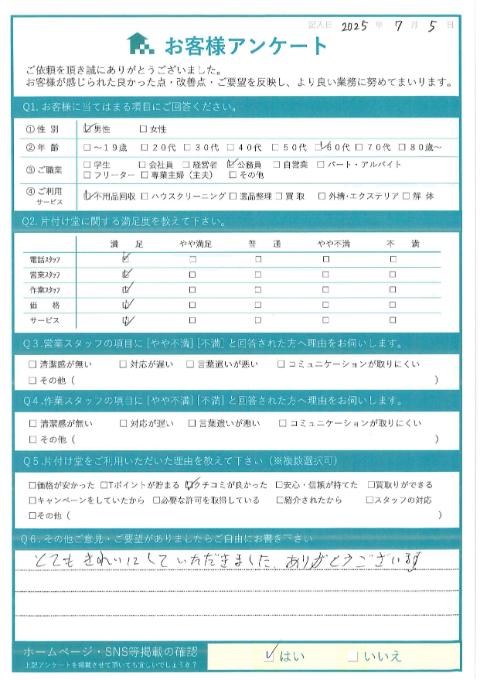 記入日 2025 年 7 月 5 日
お客様アンケート
ご依頼を頂き誠にありがとうございました。
お客様が感じられた良かった点・改善点・ご要望を反映し、より良い業務に努めてまいります。
Q1. お客様に当てはまる項目にご回答ください。
①性 別 ☑男性 □女性
②年 齢 □～19歳 □20代 □30代 □40代 □50代 ☑60代 □70代 □80歳～
③ご職業 □学生 □会社員 □経営者 ☑公務員 □自営業 □パート・アルバイト
□フリーター □専業主婦（主夫） □その他
④ご利用サービス ☑不用品回収 □ハウスクリーニング □遺品整理 □買 取 □外構・エクステリア □解 体
Q2. 片付け堂に関する満足度を教えて下さい。
満 足 やや満足 普 通 やや不満 不 満
電話スタッフ ☑ □ □ □ □
営業スタッフ ☑ □ □ □ □
作業スタッフ ☑ □ □ □ □
価 格 ☑ □ □ □ □
サービス ☑ □ □ □ □
Q3. 営業スタッフの項目に［やや不満］［不満］と回答された方へ理由をお伺いします。
□清潔感が無い □対応が遅い □言葉遣いが悪い □コミュニケーションが取りにくい
□その他（ ）
Q4. 作業スタッフの項目に［やや不満］［不満］と回答された方へ理由をお伺いします。
□清潔感が無い □対応が遅い □言葉遣いが悪い □コミュニケーションが取りにくい
□その他（ ）
Q5. 片付け堂をご利用いただいた理由を教えて下さい（※複数選択可）
□価格が安かった □Tポイントが貯まる ☑クチコミが良かった □安心・信頼が持てた □買取りができる
□キャンペーンをしていたから □必要な許可を取得している □紹介されたから □スタッフの対応
□その他（ ）
Q6. その他ご意見・ご要望がありましたらご自由にお書き下さい
とてもきれいにしていただきました。ありがとうございます
ホームページ・SNS等掲載の確認 ☑はい □いいえ
上記アンケートを掲載させて頂いても宜しいでしょうか？